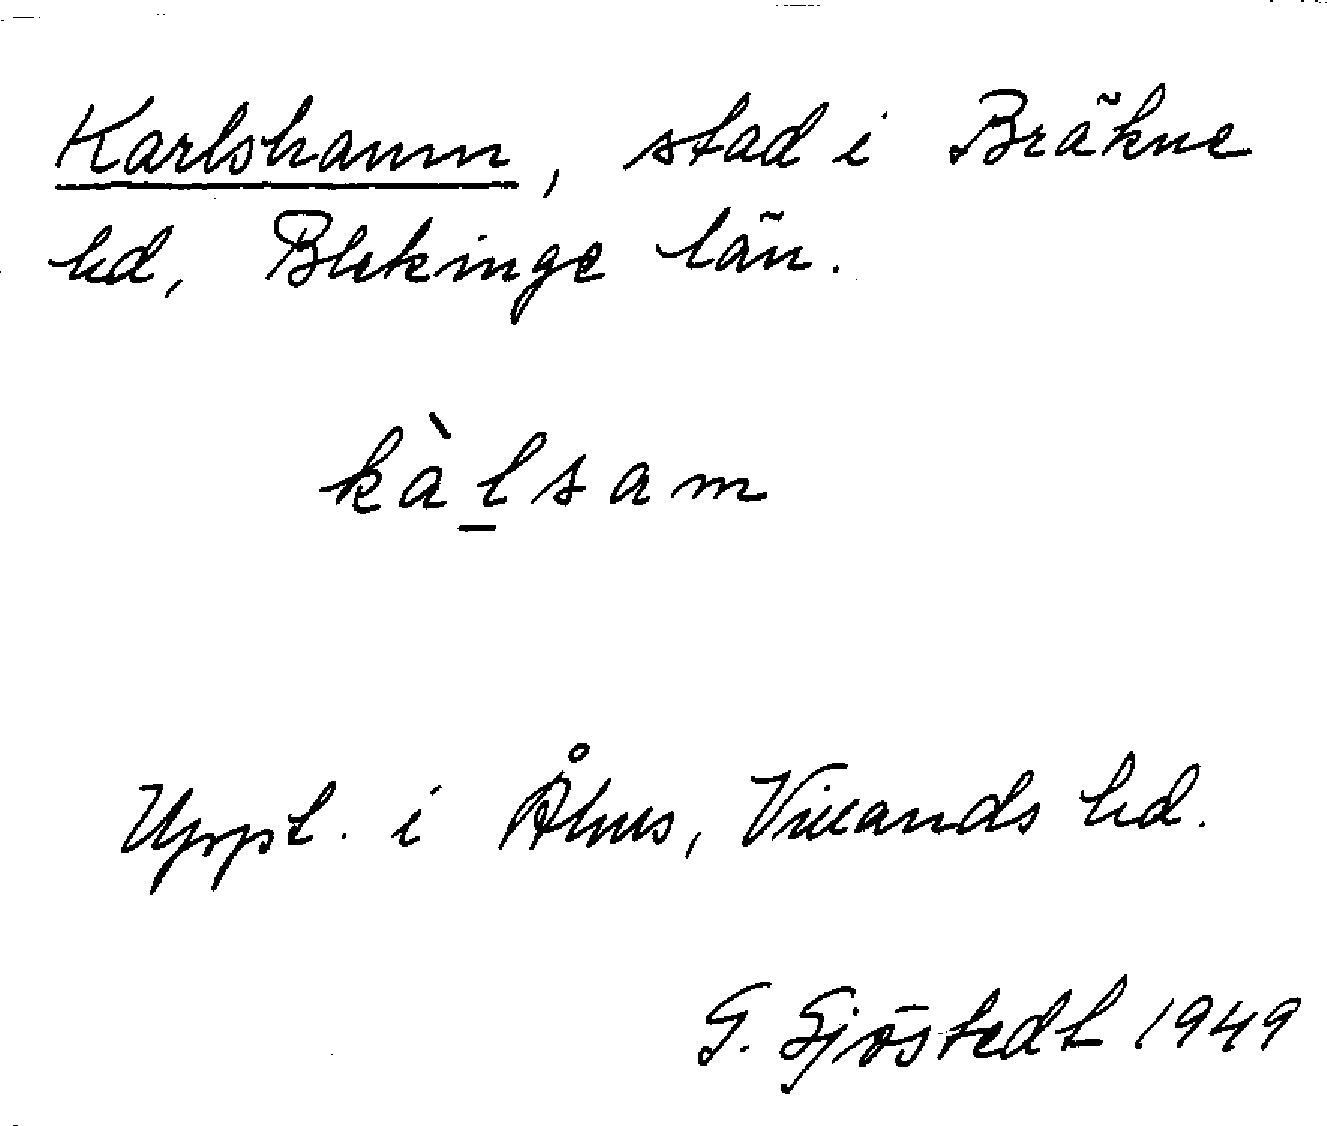 Karlshamn, stad i Bräkne
hd, Blekinge län.
kàl̲sam
Uppt. i Åhus, Villands hd.
G. Sjöstedt 1949